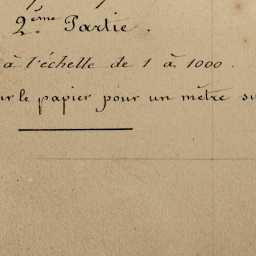 2.ème Partie.
à l'échelle de 1 à 1000.
ur le papier pour un mètre su